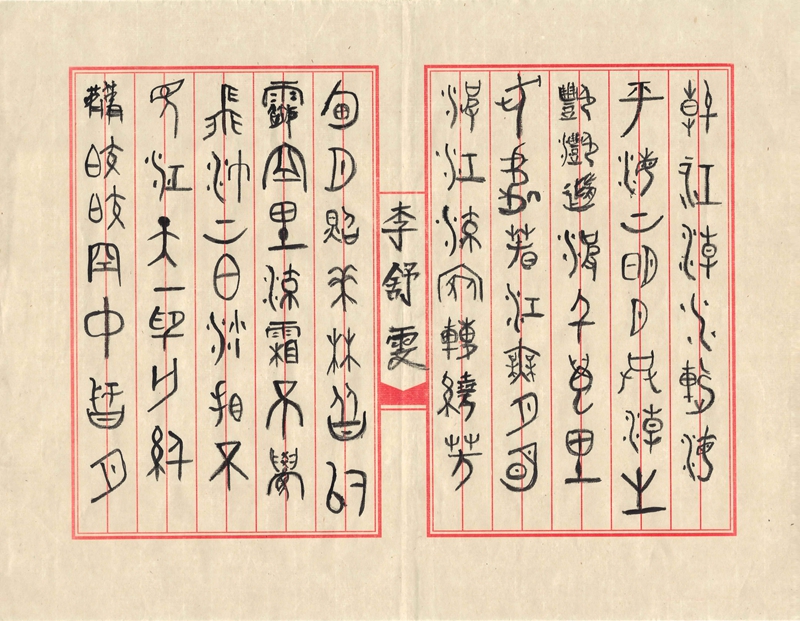 春江潮水連海
平海上明月共潮生
灩灩隨波千萬里
何處春江無月明
江流宛轉繞芳
李舒雯
甸月照花林皆似
霰空里流霜不覺
飛汀上白沙看不
見江天一色無纖
塵皎皎空中孤月